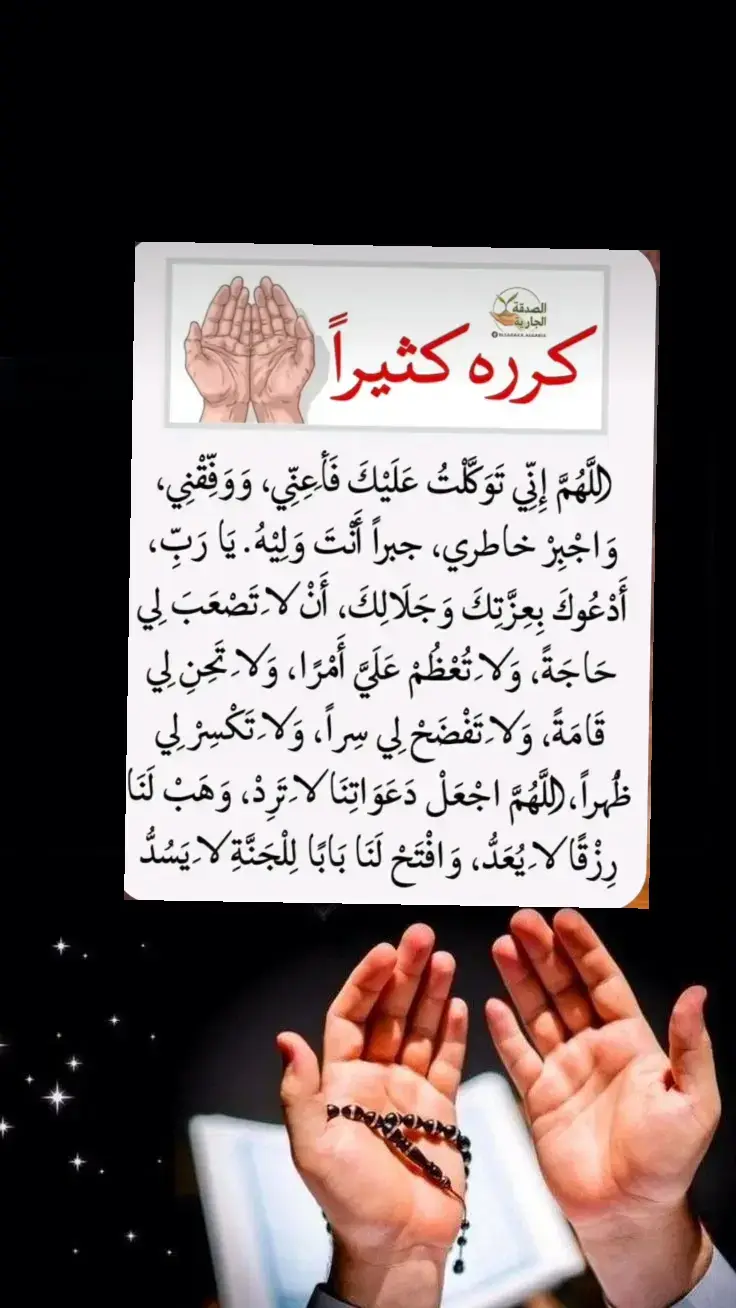 الصدقة
الجارية
كرره كثيراً
اللَّهُمَّ إِنِّي تَوَكَّلْتُ عَلَيْكَ فَأَعِنِّي، وَوَفِّقْنِي،
وَاجْبِرْ خاطري، جبراً أَنْتَ وَلِيْهُ. يَا رَبِّ،
أَدْعُوكَ بِعِزَّتِكَ وَجَلَالِكَ، أَنْ لاَ تَصْعَبَ لِي
حَاجَةً، وَلاَ تُعْظُمْ عَلَيَّ أَمْرًا، وَلاَ تَحِنِ لِي
قَامَةً، وَلاَ تَفْضَحْ لِي سِراً، وَلاَ تَكْسِرْ لِي
ظُهراً، اللَّهُمَّ اجْعَلْ دَعَوَاتِنَا لاَ تَرِدْ، وَهَبْ لَنَا
رِزْقًا لاَ يُعَدُّ، وَافْتَحْ لَنَا بَابًا لِلْجَنَّةِ لاَ يَسُدُّ